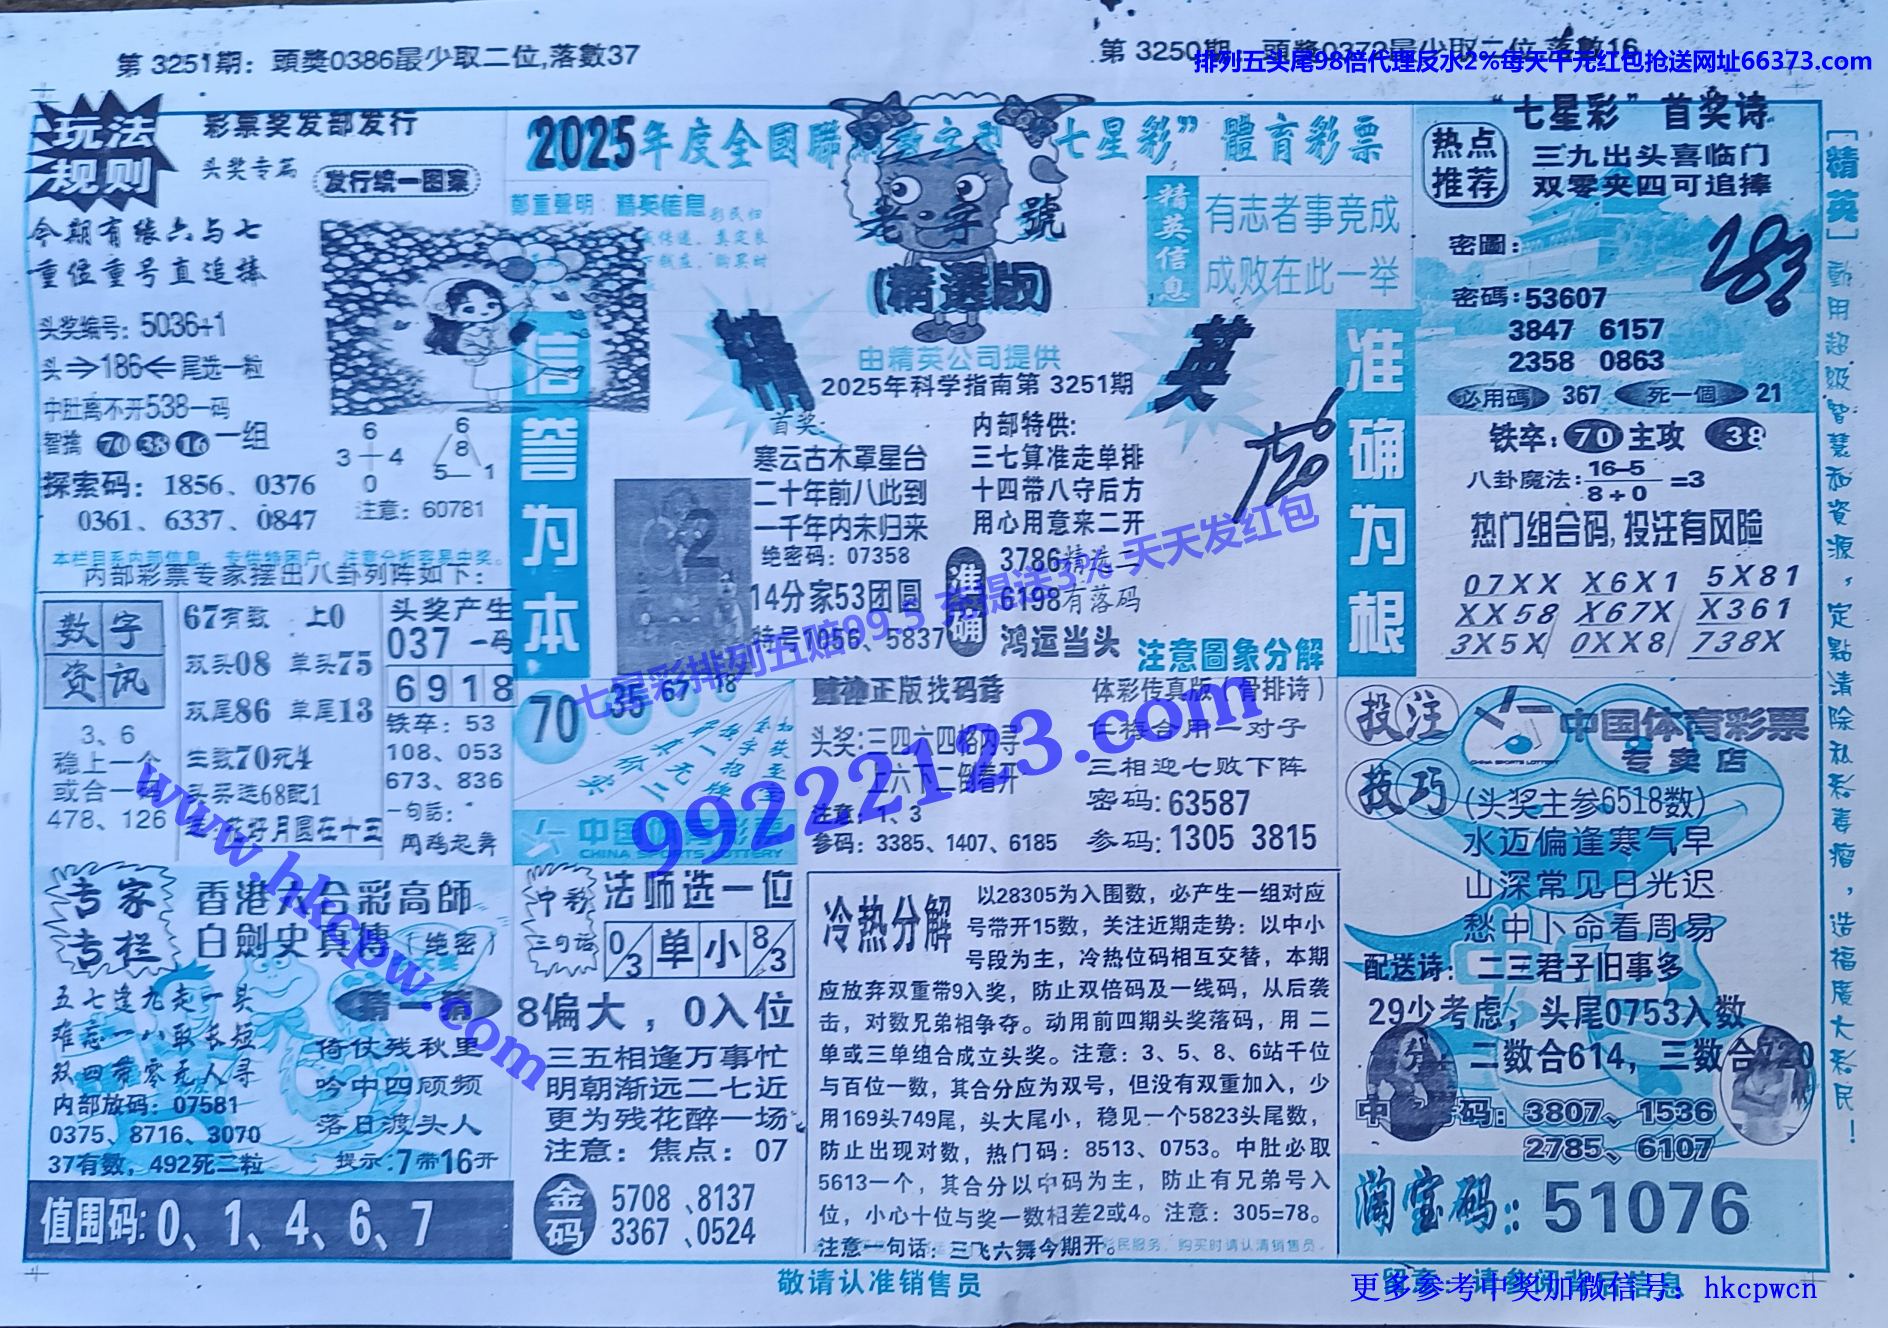 第 3251期：頭獎0386最少取二位,落數37
第 3250期：頭獎0372最少取二位,落數16
排列五头尾98倍代理反水2%每天千元红包抢送网址66373.com
玩法
规则
彩票奖发部发行
头奖专篇
发行统一图案
今期有缘六与七
重位重号直追捧
头奖编号：5036+1
头⇒186⇐尾选一粒
中肚离不开538一码
智擒 70 38 16 一组
探索码：1856、0376
0361、6337、0847
6
3 4
0
6
8
5 1
注意：60781
本栏目系内部信息，专供特困户，注意分析容易中奖。
内部彩票专家摆出八卦列阵如下：
数字
资讯
67有数 上0
双头08 单头75
双尾86 单尾13
生数70死4
头买连68配1
花好月圆在十三
头奖产生
037 一码
6918
铁卒：53
108、053
673、836
一句话：
闻鸡起舞
3、6
稳上一个
或合一码
478、126
2025年度全國聯 “七星彩”體育彩票
鄭重聲明：精英信息
老字號
(精選版)
精英信息
有志者事竞成
成败在此一举
精 英
由精英公司提供
2025年科学指南第 3251期
信誉为本
准确为根
首奖：
寒云古木罩星台
二十年前八此到
一千年内未归来
绝密码：07358
14分家53团圆
特号1056、5837
内部特供：
三七算准走单排
十四带八守后方
用心用意来二开
准确
3786精选二
6198有落码
鸿运当头
注意圖象分解
2
7506
“七星彩”首奖诗
热点
推荐
三九出头喜临门
双零夹四可追捧
密圖：
密碼：53607
3847 6157
2358 0863
必用碼 367 死一個 21
铁卒：70 主攻 38
八卦魔法：16-5
8÷0
=3
热门组合码,投注有风险
07XX X6X1 5X81
XX58 X67X X361
3X5X 0XX8 738X
[精英]動用超级智慧和資源，定點清除私彩毒瘤，造福廣大彩民！
70 35 67 18
中国体育彩票
CHINA SPORTS LOTTERY
赌神正版找码诗
头奖:三四六四格内寻
上六下二倒看开
注意：1、3
参码：3385、1407、6185
体彩传真版（骨排诗）
仁梅合用一对子
三相迎七败下阵
密码：63587
参码：1305 3815
七星彩排列五赔99.5 充提送3% 天天发红包
99222123.com
www.hkcpw.com
投注
技巧
中国体育彩票
CHINA SPORTS LOTTERY
专卖店
(头奖主参6518数)
水迈偏逢寒气早
山深常见日光迟
愁中卜命看周易
配送诗：二三君子旧事多
29少考虑，头尾0753入数
二数合614，三数合
3807、1536
2785、6107
淘宝码：51076
专家
专栏
香港大合彩高師
白劍史真傳（绝密）
五七逢九走一头
难忘一八取长短
双四带零无人寻
猜一猜
倚仗残秋里
吟中四顾频
落日渡头人
内部放码：07581
0375、8716、3070
37有数，492死二粒
提示：7带16开
值围码:0、1、4、6、7
中彩
三句话
法师选一位
0/3 单 小 8/3
8偏大，0入位
三五相逢万事忙
明朝渐远二七近
更为残花醉一场
注意：焦点：07
金码
5708 、8137
3367 、0524
冷热分解
以28305为入围数，必产生一组对应
号带开15数，关注近期走势：以中小
号段为主，冷热位码相互交替，本期
应放弃双重带9入奖，防止双倍码及一线码，从后袭
击，对数兄弟相争夺。动用前四期头奖落码，用 二
单或三单组合成立头奖。注意：3、5、8、6站千位
与百位一数，其合分应为双号，但没有双重加入，少
用169头749尾，头大尾小，稳见一个5823头尾数，
防止出现对数，热门码：8513、0753。中肚必取
5613一个，其合分以中码为主，防止有兄弟号入
位，小心十位与奖一数相差2或4。注意：305=78。
注意一句话：三飞六舞今期开。
敬请认准销售员
更多参考中奖加微信号：hkcpwcn